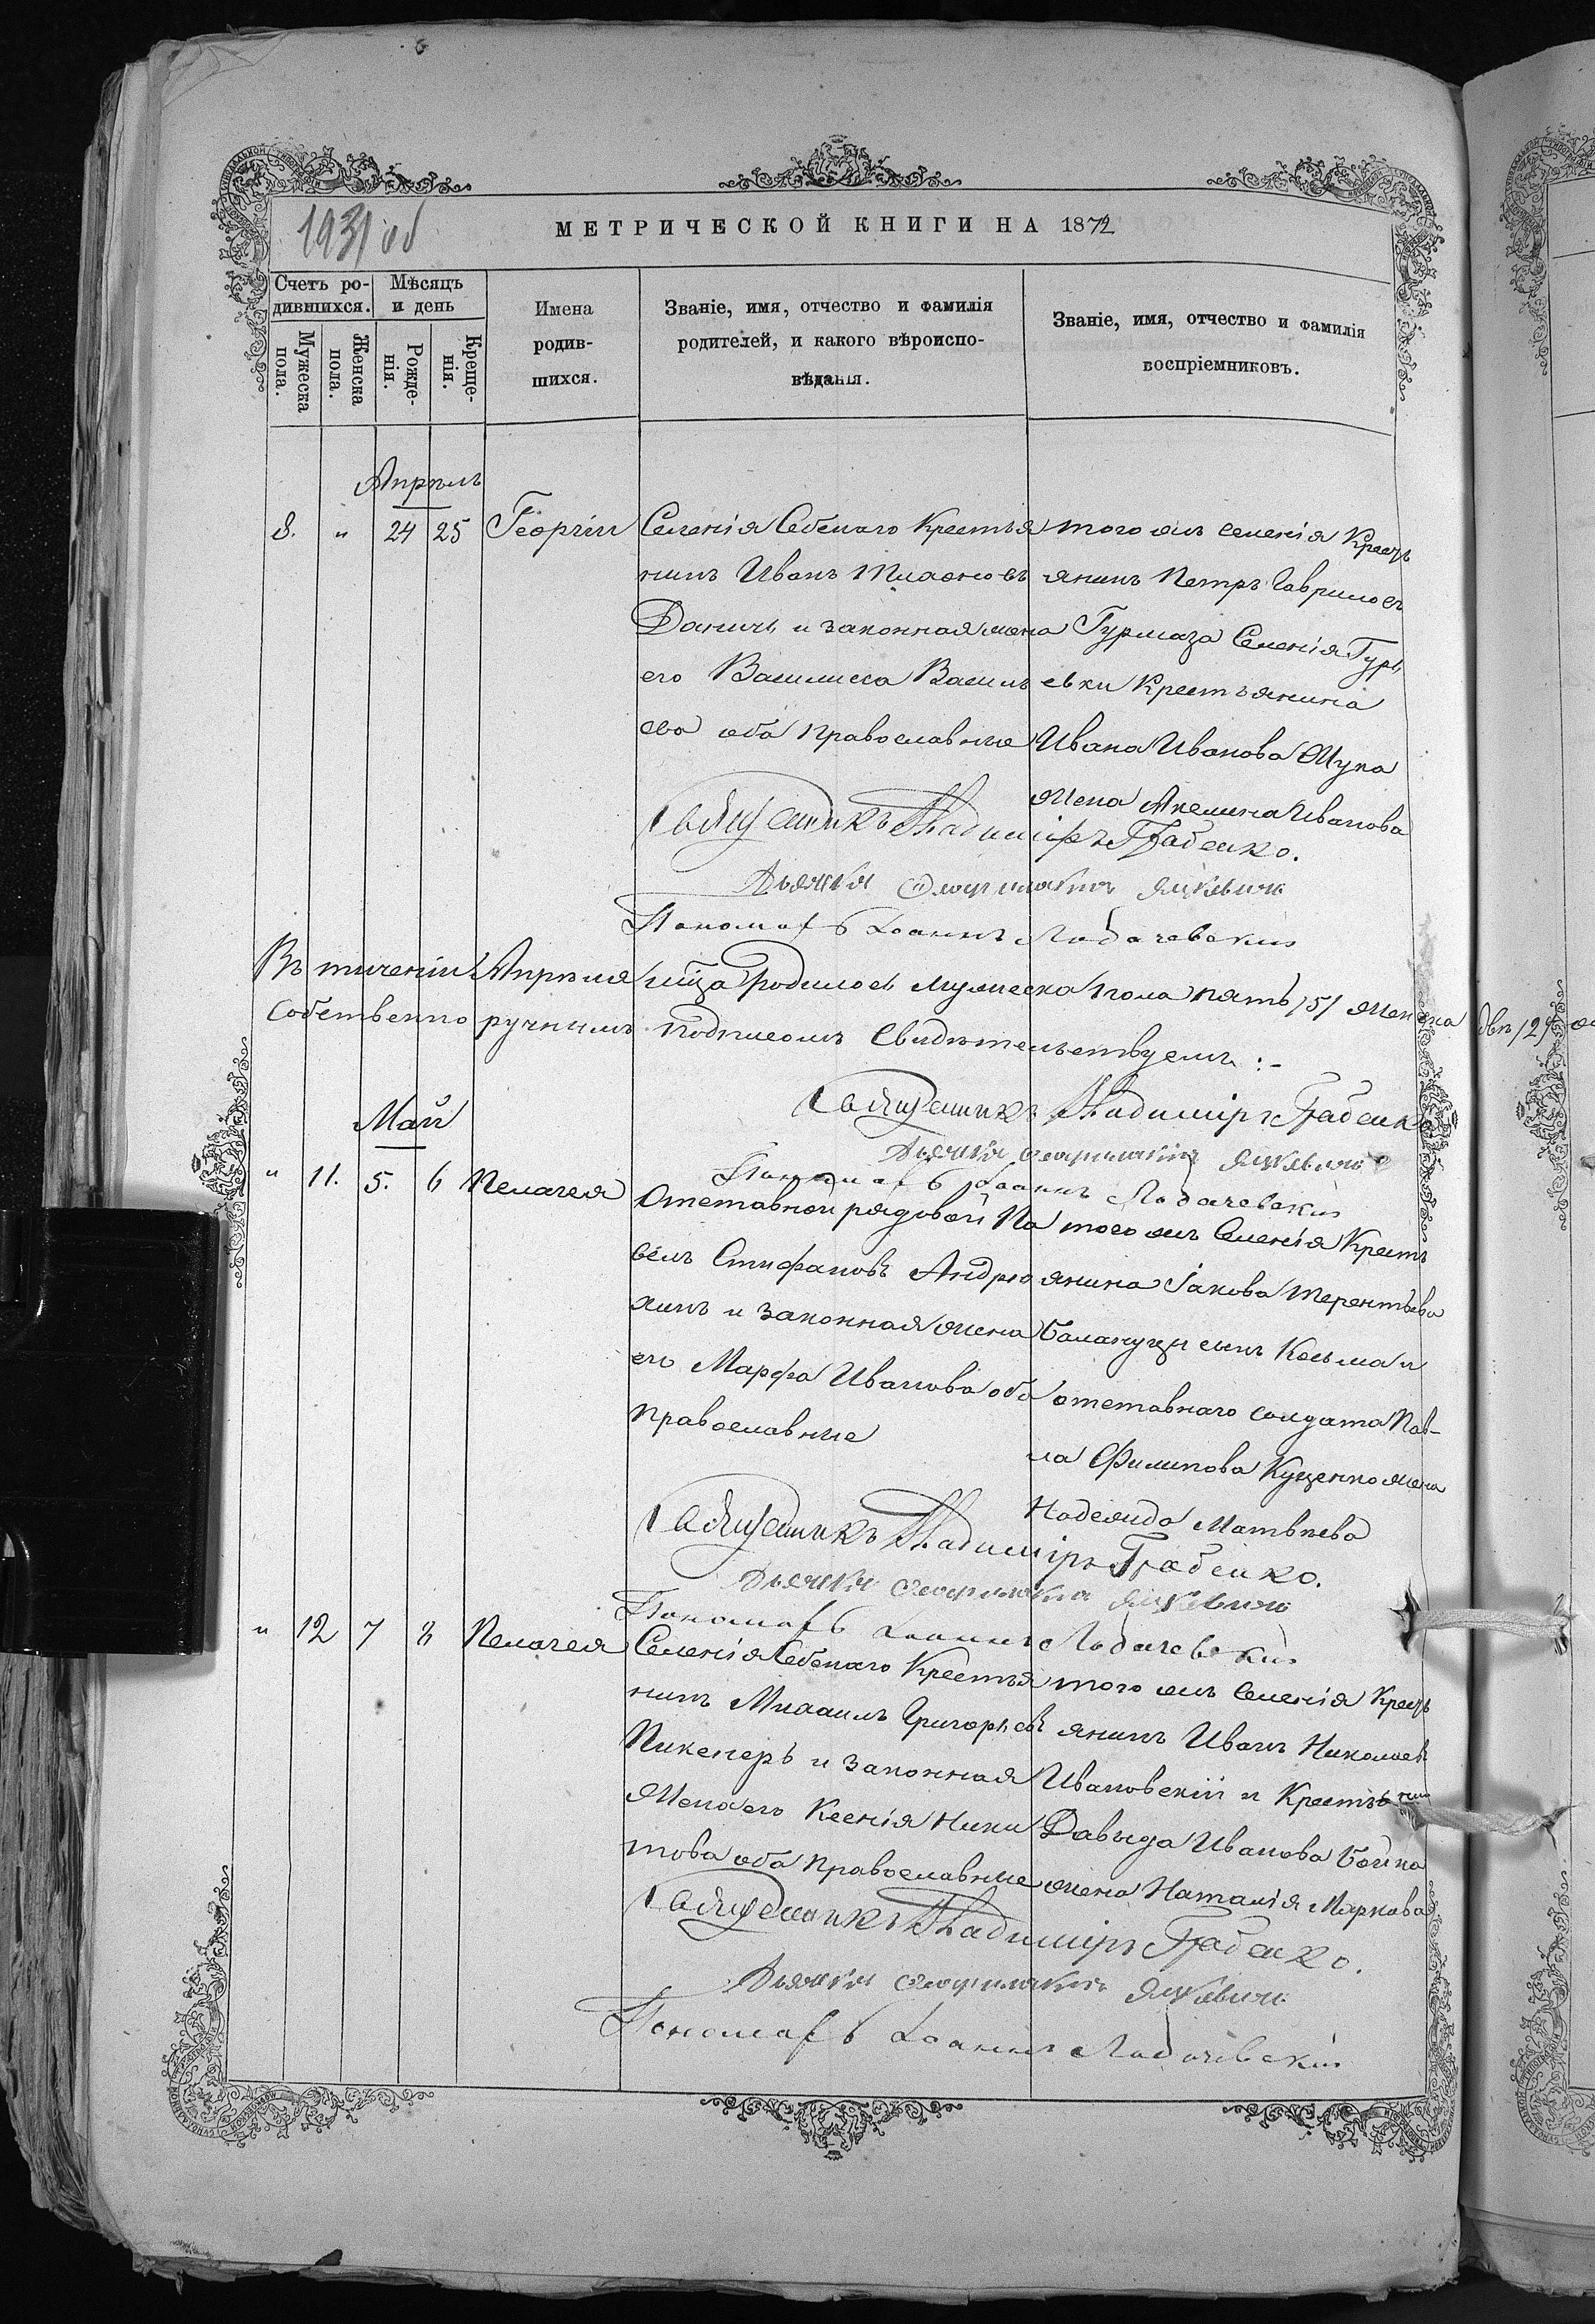 1931 об
МЕТРИЧЕСКОЙ КНИГИ НА 1872
Счетъ ро-
дившихся.
Мѣсяцъ
и день
Мужеска
пола.
Женска
пола.
Рожде-
нія.
Креще-
нія.
Имена
родив-
шихся.
Званіе, имя, отчество и фамилія
родителей, и какого вѣроиспо-
вѣданія.
Званіе, имя, отчество и фамилія
воспріемниковъ.
Апрѣль
8. " 24 25 Георгій
Селенія Себенаго Крестья
нинъ Иванъ
Даничъ и законная жена
его Василиса Василь
ева оба православные
того жъ селенія Крест
янинъ Петръ Гаврилоев
Гурмаза Селенія Гурь
евки Крестьянина
Ивана Иванова Жука
жена Акелина Иванова
Священникъ Владиміръ Грабенко.
Дьячекъ Янкевичъ
Пономарь Іоаннъ Лобачевскій
Въ теченіи Апрѣля мца родилось мужеска пола пять /5/ женска двѣ /2/
собственно ручнымъ подписомъ свидѣтельствуемъ :-
Священникъ Владиміръ Грабенко
Дьячекъ Янкевичъ
Пономарь Іоаннъ Лобачевскій
Май
" 11. 5. 6 Пелагея
Отставной рядовой Па
велъ Стифановъ Андрю
хинъ и законная жена
его Марфа Иванова оба
православные
того жъ Селенія Кресть
янина Іакова Терентьева
Балануцы сынъ Косьма и
отставнаго солдата Пав-
ла Филипова Куценко жена
Надежда Матвѣева
Священникъ Владиміръ Грабенко.
Дьячекъ Янкевичъ
Пономарь Іоаннъ Лобачевскій
" 12 7 8 Пелагея
Селенія Себенаго Крестья
нинъ Михаилъ Григорьевъ
Пикенеръ и законная
жена его Ксенія Ники
това оба православные
того жъ Селенія Крест
янинъ Иванъ Николаевъ
Ивановскій и Крестьянина
Давыда Иванова Бойка
жена Наталія Маркова
Священникъ Владиміръ Грабенко.
Дьячекъ Янкевичъ
Пономарь Іоаннъ Лобачевскій